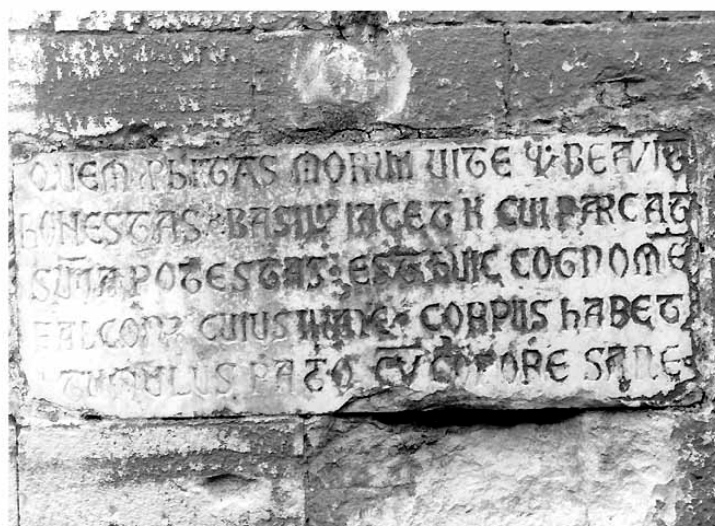 QUEM PBITAS MORUM UITE Q BEAVIT
hONESTAS BASILI IACET H CUI PARCAT
SUMA POTESTAS EST HUIC COGNOME
FALCON CUIUS CORPUS hABET
TUMULUS PATO CU CORPORE SANE